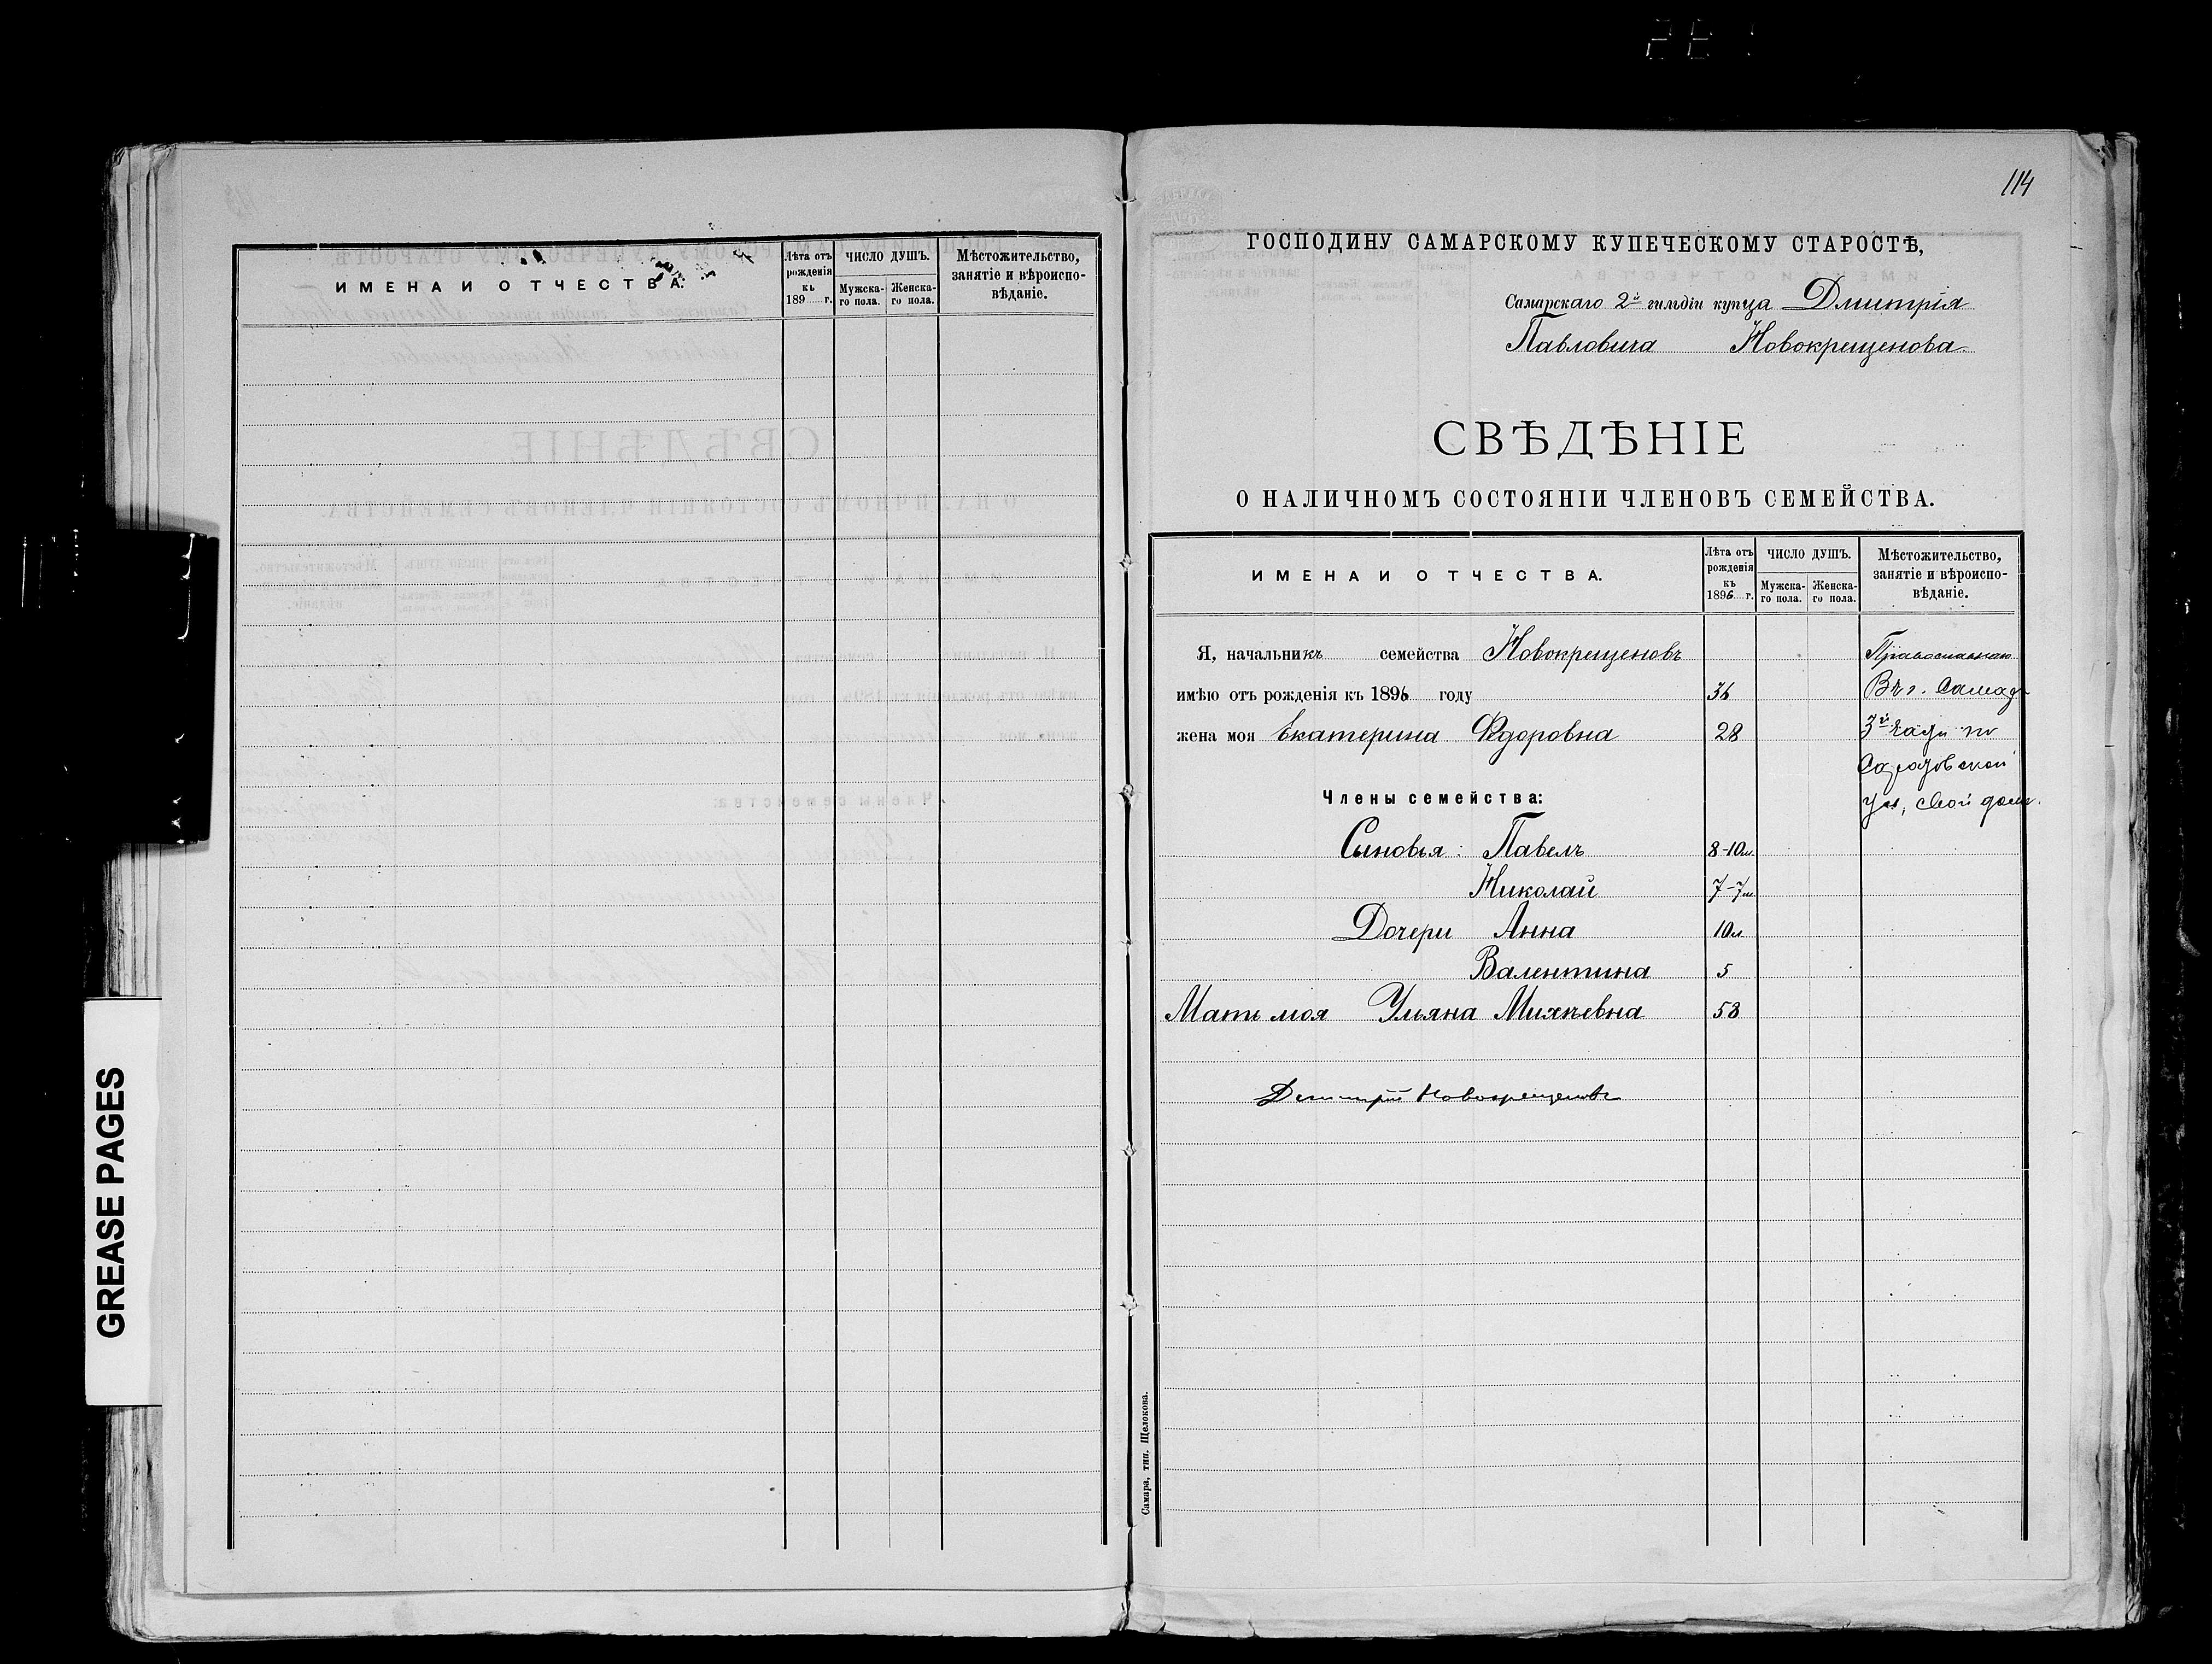 ИМЕНА И ОТЧЕСТВА.
Лѣта отъ рожденія къ 189 г.
ЧИСЛО ДУШЪ.
Мужска-го пола.
Женска-го пола.
Мѣстожительство, занятіе и вѣроиспо-вѣданіе.
GREASE PAGES
114
ГОСПОДИНУ САМАРСКОМУ КУПЕЧЕСКОМУ СТАРОСТѢ,
Самарскаго 2й гильдіи купца Дмитрія
Павловича Новокрещенова
СВѢДѢНІЕ
О НАЛИЧНОМЪ СОСТОЯНІИ ЧЛЕНОВЪ СЕМЕЙСТВА.
ИМЕНА И ОТЧЕСТВА.
Лѣта отъ рожденія къ 1896 г.
ЧИСЛО ДУШЪ.
Мужска-го пола.
Женска-го пола.
Мѣстожительство, занятіе и вѣроиспо-вѣданіе.
Я, начальникъ семейства Новокрещеновъ Православнаго
имѣю отъ рожденія къ 1896 году 36 Въ г. Самарѣ
жена моя Екатерина Федоровна 28 3й части по
Саратовской
Члены семейства: ул, свой домъ.
Сыновья: Павелъ 8-10м.
Николай 7-7м
Дочери Анна 10л
Валентина 5
Мать моя Ульяна 58
Дмитрій Новокрещеновъ
Самара, тип. Щелокова.